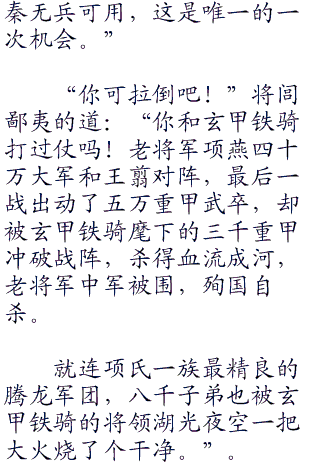 秦无兵可用，这是唯一的一
次机会。”
“你可拉倒吧！”将闾
鄙夷的道：“你和玄甲铁骑
打过仗吗！老将军项燕四十
万大军和王翦对阵，最后一
战出动了五万重甲武卒，却
被玄甲铁骑麾下的三千重甲
冲破战阵，杀得血流成河，
老将军中军被围，殉国自
杀。
就连项氏一族最精良的
腾龙军团，八千子弟也被玄
甲铁骑的将领湖光夜空一把
大火烧了个干净。”。